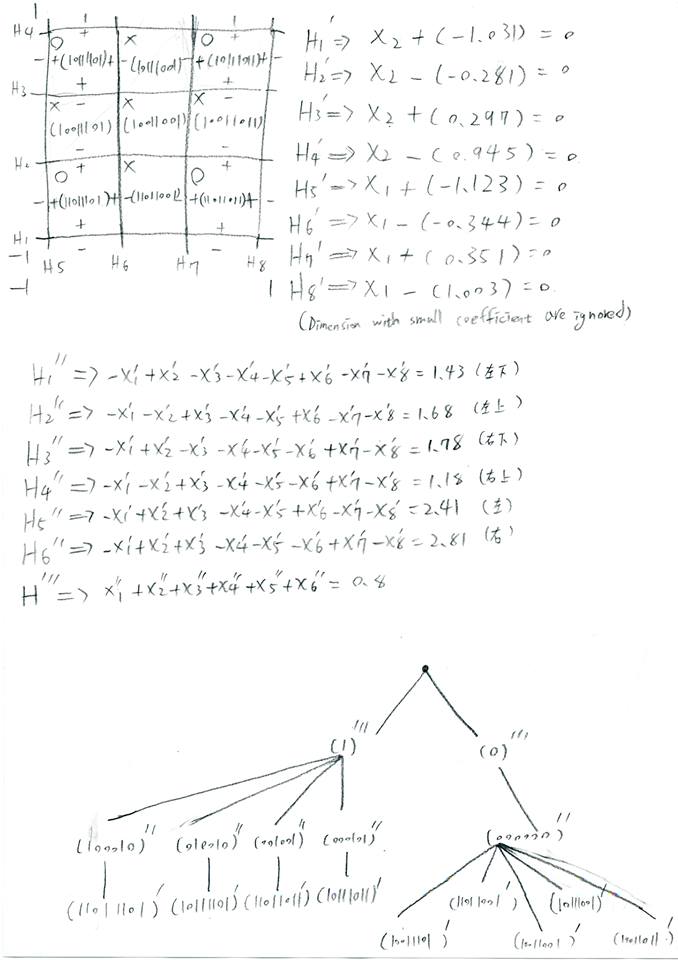 1
H4 + + 1
O X O
- +(1011101)+ -(1011001) +(1011011)+ -
+ +
H3
X - X X -
(1001101) (1001001) (1001011)
- -
O + X O +
+ +
H1
-1 - -
H5 H6 H7 H8
-1 1
H1' => X2 + (-1.031) = 0
H2' => X2 - (-0.281) = 0
H3' => X2 + (0.297) = 0
H4' => X2 - (0.945) = 0
H5' => X1 + (-1.123) = 0
H6' => X1 - (-0.344) = 0
H7' => X1 + (0.351) = 0
H8' => X1 - (1.003) = 0
(Dimension with small coefficient are ignored)
H1'' => -X1' + X2' - X3' - X4' - X5' + X6' - X7' - X8' = 1.43 (左下)
H2'' => -X1' - X2' + X3' - X4' - X5' + X6' - X7' - X8' = 1.68 (左上)
H3'' => -X1' + X2' - X3' - X4' - X5' - X6' + X7' - X8' = 1.78 (右下)
H4'' => -X1' - X2' + X3' - X4' - X5' - X6' + X7' - X8' = 1.18 (右上)
H5'' => -X1' + X2' + X3' - X4' - X5' + X6' - X7' - X8' = 2.41 (左)
H6'' => -X1' + X2' + X3' - X4' - X5' - X6' + X7' - X8' = 2.81 (右)
H''' => X1'' + X2'' + X3'' + X4'' + X5'' + X6'' = 0.8
(1)''' (0)'''
(100010)'' (010010)'' (001001)'' (000101)'' (000000)''
(11011101)' (10111101)' (11011011)' (10111011)'
(11011001)' (10111001)'
(10011101)' (10011001)' (10011011)'